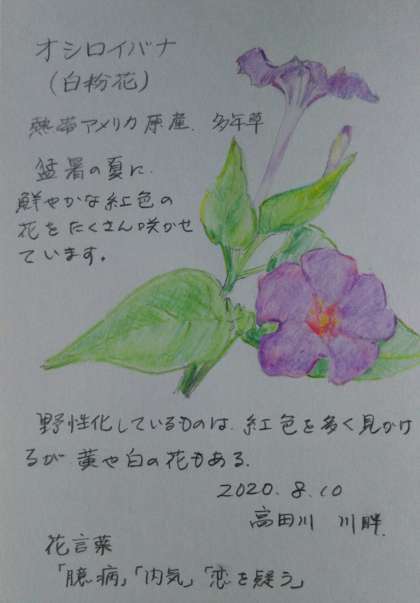 オシロイバナ
(白粉花)
熱帯アメリカ原産. 多年草
猛暑の夏に
鮮やかな紅色の
花をたくさん咲かせ
ています。
野性化しているものは. 紅色を多く見かけ
るが 黄や白の花もある.
2020.8.10
高田川 川畔.
花言葉
「臆病」「内気」「恋を疑う」